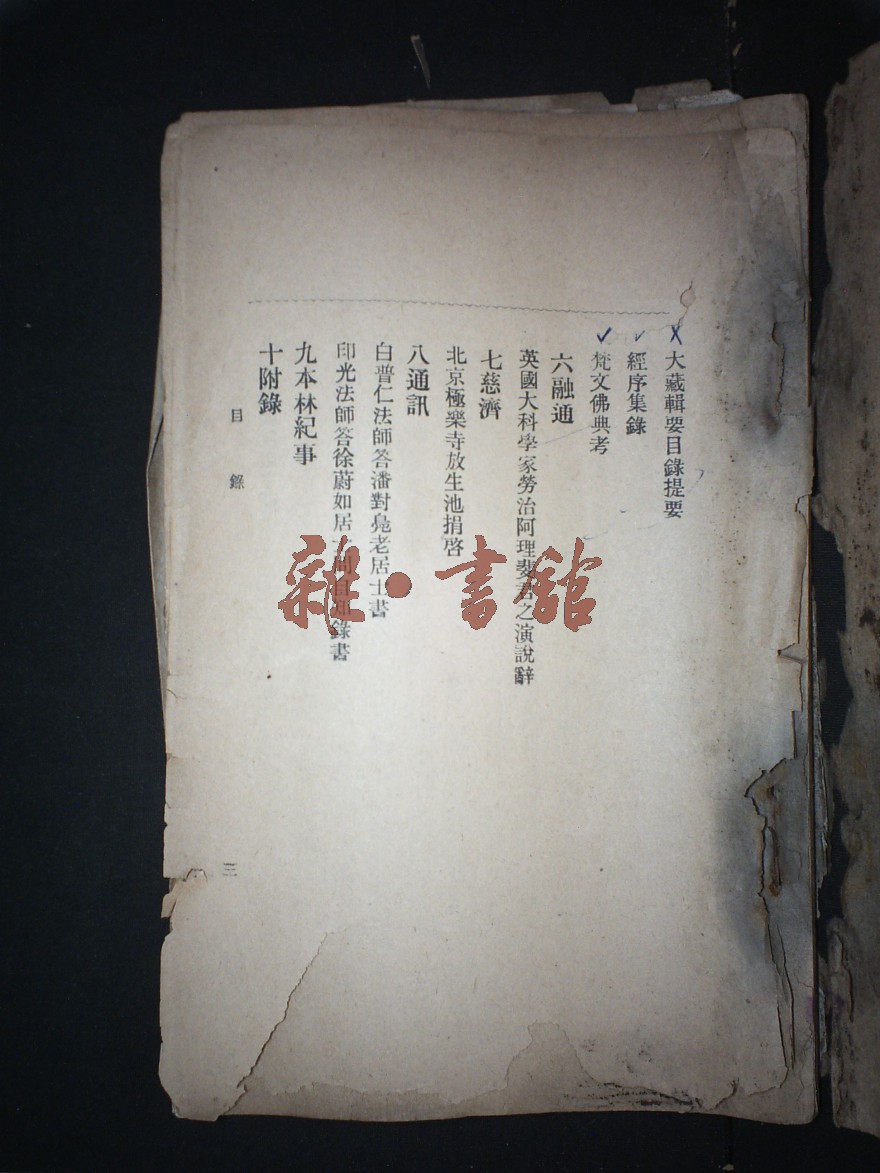 大藏輯要目錄提要
經序集錄
梵文佛典考
六融通
英國大科學家勞治阿理斐君之演說辭
七慈濟
北京極樂寺放生池捐啓
八通訊
白普仁法師答潘對鳧老居士書
印光法師答徐蔚如居士問自知錄書
九本林紀事
十附錄
目錄
三
雜·書館